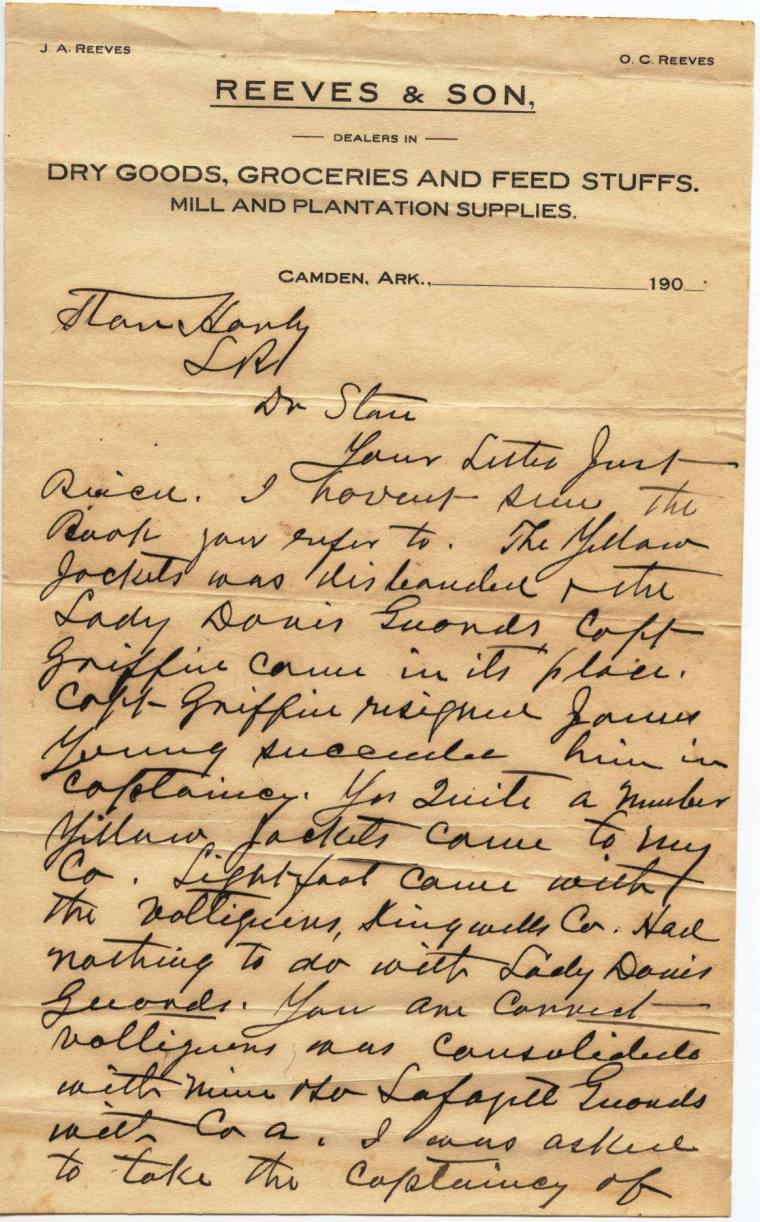 J. A. REEVES
O. C. REEVES
REEVES & SON,
DEALERS IN
DRY GOODS, GROCERIES AND FEED STUFFS.
MILL AND PLANTATION SUPPLIES.
CAMDEN, ARK., 190
Stan Harly
L R
Dr Stan
Your Letter Just
Reicd. I havent seen the
Book you refer to. The Yellow
Jackets was disbanded & the
Lady Davis Guards Capt
Griffin came in its place.
Capt Griffin resigned James
Young succeeded him in
Captaincy. Yes Quite a number
Yellow Jackets came to my
Co. Lightfoot came with
the Volligeurs, Kingwells Co. Had
nothing to do with Lady Davis
Guards. You are Correct
Volligeurs was Consolidated
with mine also Lafayett Guards
with Co a. I was asked
to take the Captaincy of